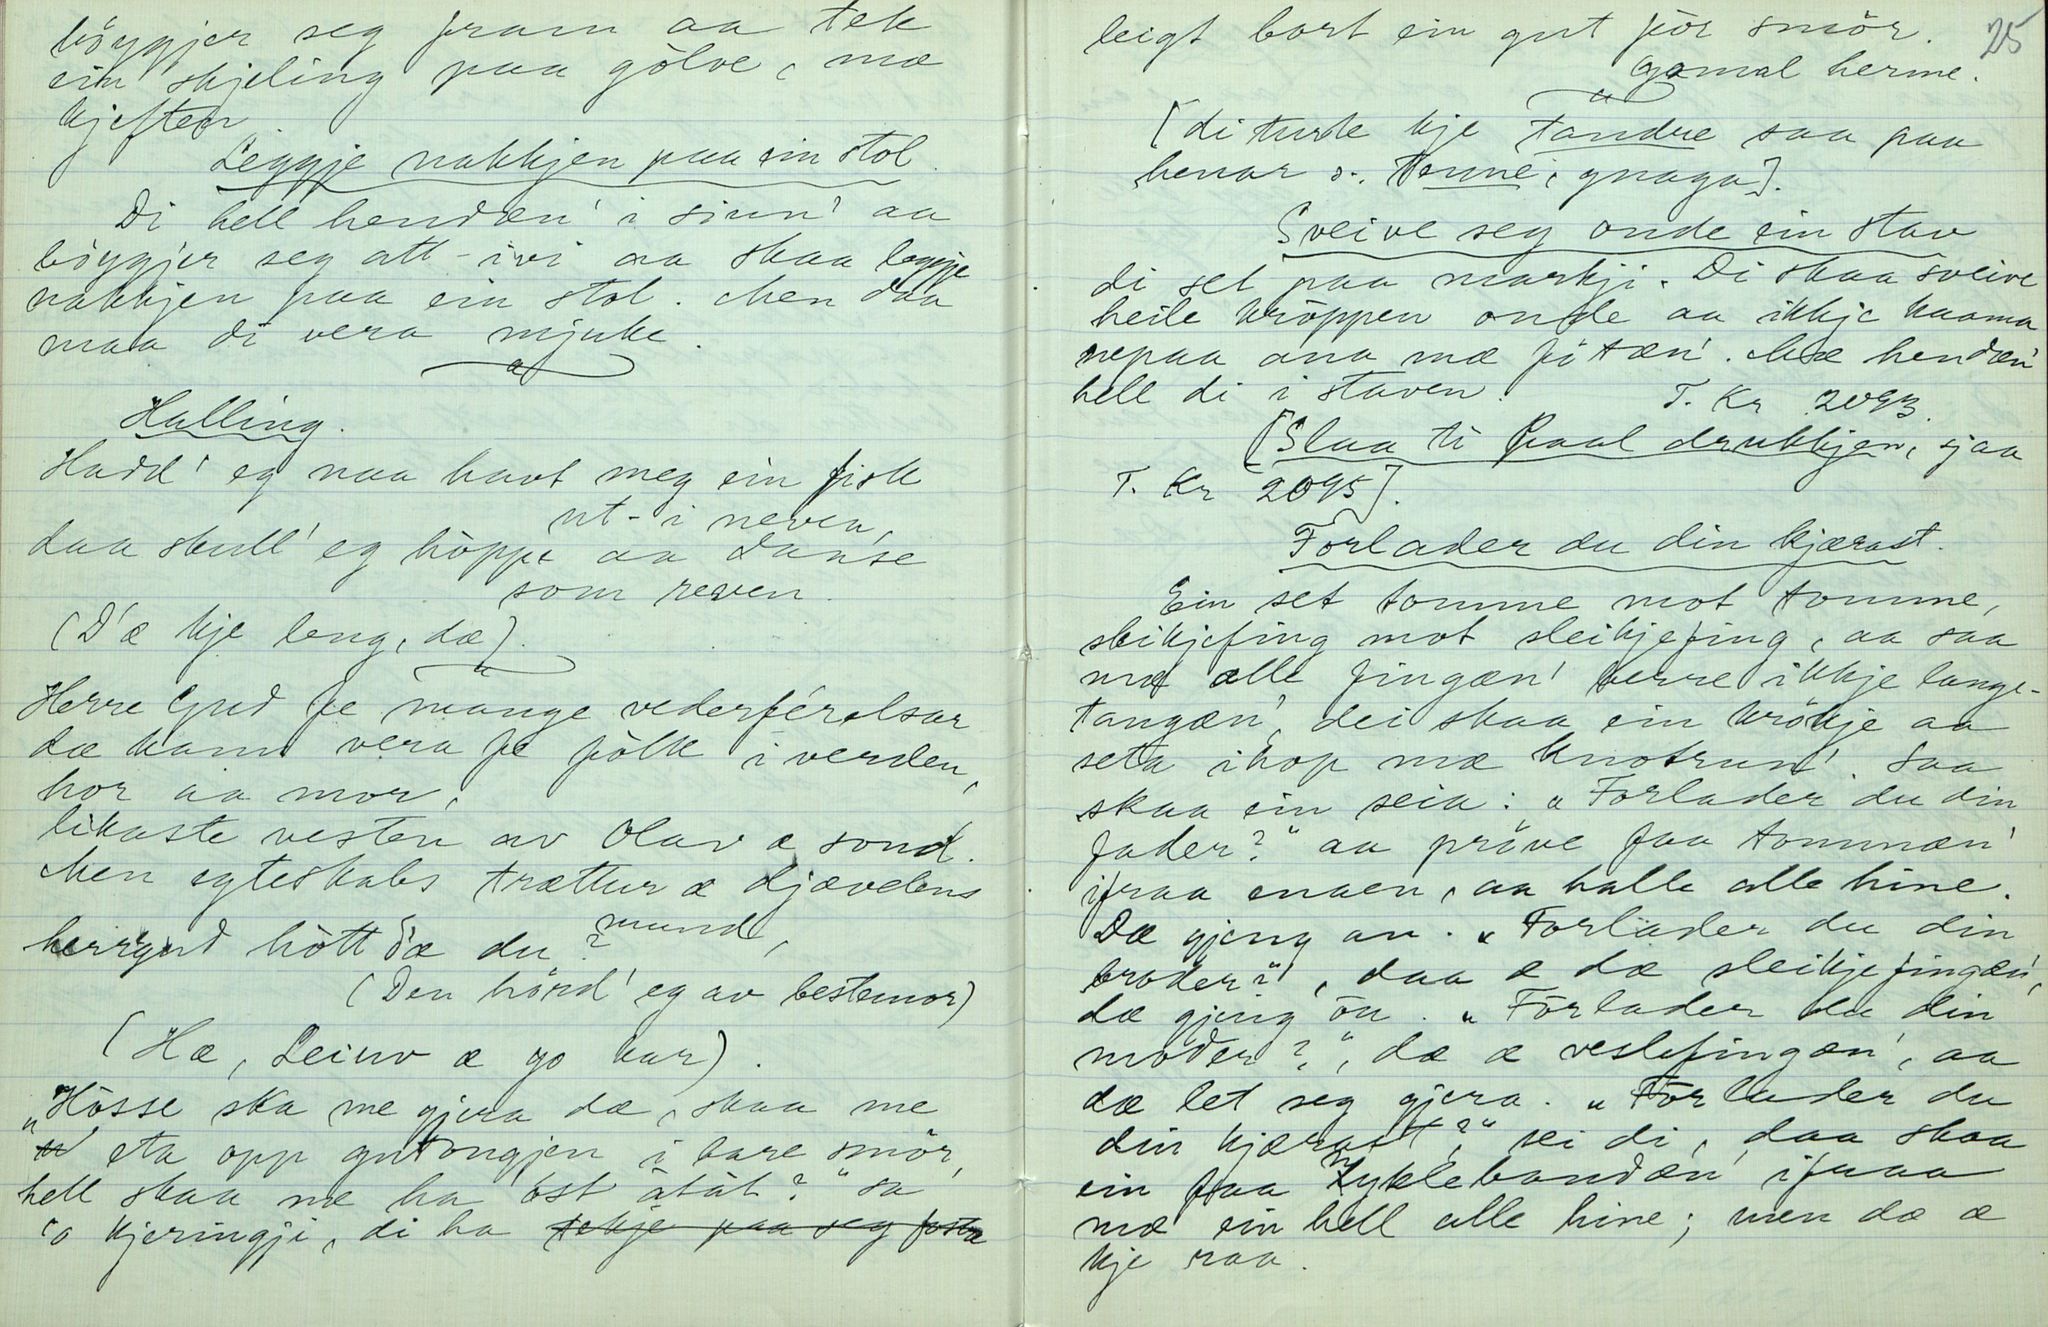 böygjer seg fram aa tek
ein skjeling paa gölve, mæ
kjeften.
Leggje nakkjen paa ein stol.
Di hell hendæn' i sinn' aa
böygjer seg att-ivi aa skaa leggje
nakkjen paa ein stol. Men daa
maa di vera mjuke.
Halling.
Hadd' eg naa havt meg ein fisk
ut-i neven,
daa skull' eg höppe aa danse
som reven.
(D'æ kje leng, dæ).
Herre Gud fe mange vederférelsar
dæ kann vera fe fölk i verden,
hor aa mor,
likaste vesten av Olav æ sond.
Men egteskabs trættur æ djævelens
mund,
herregud hött d'æ du?
(Den hörd' eg av bestemor)
(Hæ, Leiuv æ go kar).
"Hösse ska me gjera dæ, skaa me
eta opp gutongjen i bare smör,
hell skaa me ha ost åtåt?" sa
o kjeringji, di ha tekje paa seg fostra
25
leigt bort ein gut för smör.
Gamal herme.
[di turte kje tandre saa paa
benar o. tenne, gnaga].
Sveive seg onde ein stav
di set paa markji. Di skaa sveive
heile kröppen onde aa ikkje kaama
nepaa ana mæ fötæn'. Mæ hendæn'
hell di i staven. T. Kr 2093.
[Slaa ti Paal drukkjen, sjaa
T. Kr 2095].
Forlader du din kjærast.
Ein set tomme mot tomme,
sleikjefing mot sleikjefing, aa saa
mæ alle fingæn' verre ikkje lange-
tangæn', dei skaa ein krökje aa
seta ihop mæ knotrun'. Saa
skaa ein seia: "Forlader du din
fader?" aa pröve faa tommæn'
ifraa enaen, aa halle alle hine.
Dæ gjeng an. "Forlader du din
broder?", daa æ dæ sleikjefingæn',
dæ gjeng ön. "Forlader du din
moder?", dæ æ veslefingæn', aa
dæ let seg gjera. "Forlader du
din kjærast?" sei di, daa skaa
ein faa Lyklebandæn' ifraa
mæ ein hell alle hine; men dæ æ
kje raa.